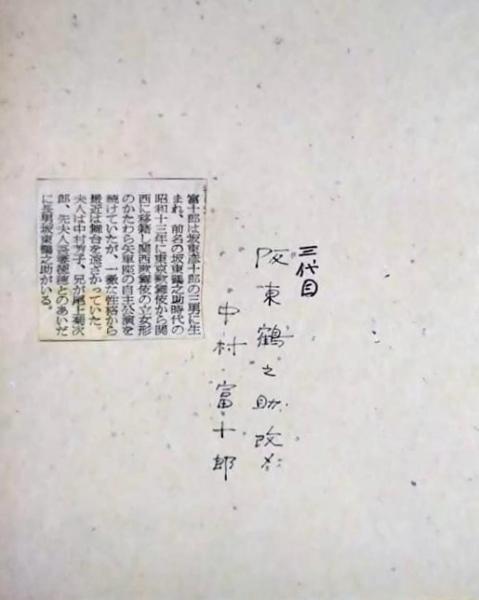 三代目
阪東鶴之助改メ
中村富十郎
富十郎は坂東彦十郎の三男に生
まれ、前名の坂東鶴之助時代の
昭和十三年に東京歌舞伎から関
西に移籍、関西歌舞伎の立女形
のかたわら矢車座の自主公演を
続けていたが、一徹な性格から
最近は舞台を遠ざかっていた。
夫人は中村芳子、兄が尾上菊次
郎、先夫人吾妻徳穂とのあいだ
に長男坂東鶴之助がいる。